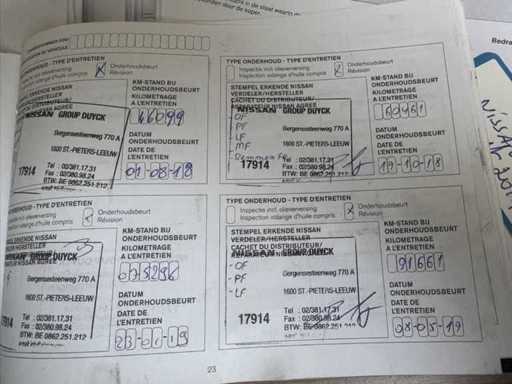 Bedra
TYPE D'ENTRETIEN
Inspectie incl. olieverversing
Inspection vidange d'huile compris
Onderhoudsbeurt
Révision
KM-STAND BIJ
ONDERHOUDSBEURT
KILOMETRAGE
A L'ENTRETIEN
NISSAN GROUP DUYCK
Bergensesteenweg 770 A
1600 ST.-PIETERS-LEEUW
17914
Tel : 02/381.17.31
Fax : 02/380.98.24
BTW: BE 0862.251.212
DATUM
ONDERHOUDSBEURT
DATE DE
L'ENTRETIEN
01-08-18
TYPE ONDERHOUD - TYPE D'ENTRETIEN
Inspectie incl. olieverversing
Inspection vidange d'huile compris
Onderhoudsbeurt
Révision
STEMPEL ERKENDE NISSAN
VERDELER/HERSTELLER
CACHET DU DISTRIBUTEUR/
KM-STAND BIJ
ONDERHOUDSBEURT
KILOMETRAGE
A L'ENTRETIEN
NISSAN GROUP DUYCK
- OF
- PF
- LF
- MF
Bergensesteenweg 770 A
1600 ST.-PIETERS-LEEUW
17914
Tel : 02/381.17.31
Fax : 02/380.98.24
BTW: BE 0862.251.212
DATUM
ONDERHOUDSBEURT
DATE DE
L'ENTRETIEN
19-10-18
TYPE D'ENTRETIEN
Onderhoudsbeurt
Révision
KM-STAND BIJ
ONDERHOUDSBEURT
KILOMETRAGE
A L'ENTRETIEN
GROUP DUYCK
Bergensesteenweg 770 A
1600 ST.-PIETERS-LEEUW
17914
Tel : 02/381.17.31
Fax : 02/380.98.24
BTW: BE 0862.251.212
DATUM
ONDERHOUDSBEURT
DATE DE
L'ENTRETIEN
23-01-19
TYPE ONDERHOUD - TYPE D'ENTRETIEN
Inspectie incl. olieverversing
Inspection vidange d'huile compris
Onderhoudsbeurt
Révision
STEMPEL ERKENDE NISSAN
VERDELER/HERSTELLER
CACHET DU DISTRIBUTEUR/
KM-STAND BIJ
ONDERHOUDSBEURT
KILOMETRAGE
A L'ENTRETIEN
91661
NISSAN GROUP DUYCK
- OF
- PF
- LF
Bergensesteenweg 770 A
1600 ST.-PIETERS-LEEUW
17914
Tel : 02/381.17.31
Fax : 02/380.98.24
BTW: BE 0862.251.212
DATUM
ONDERHOUDSBEURT
DATE DE
L'ENTRETIEN
08-05-19
23